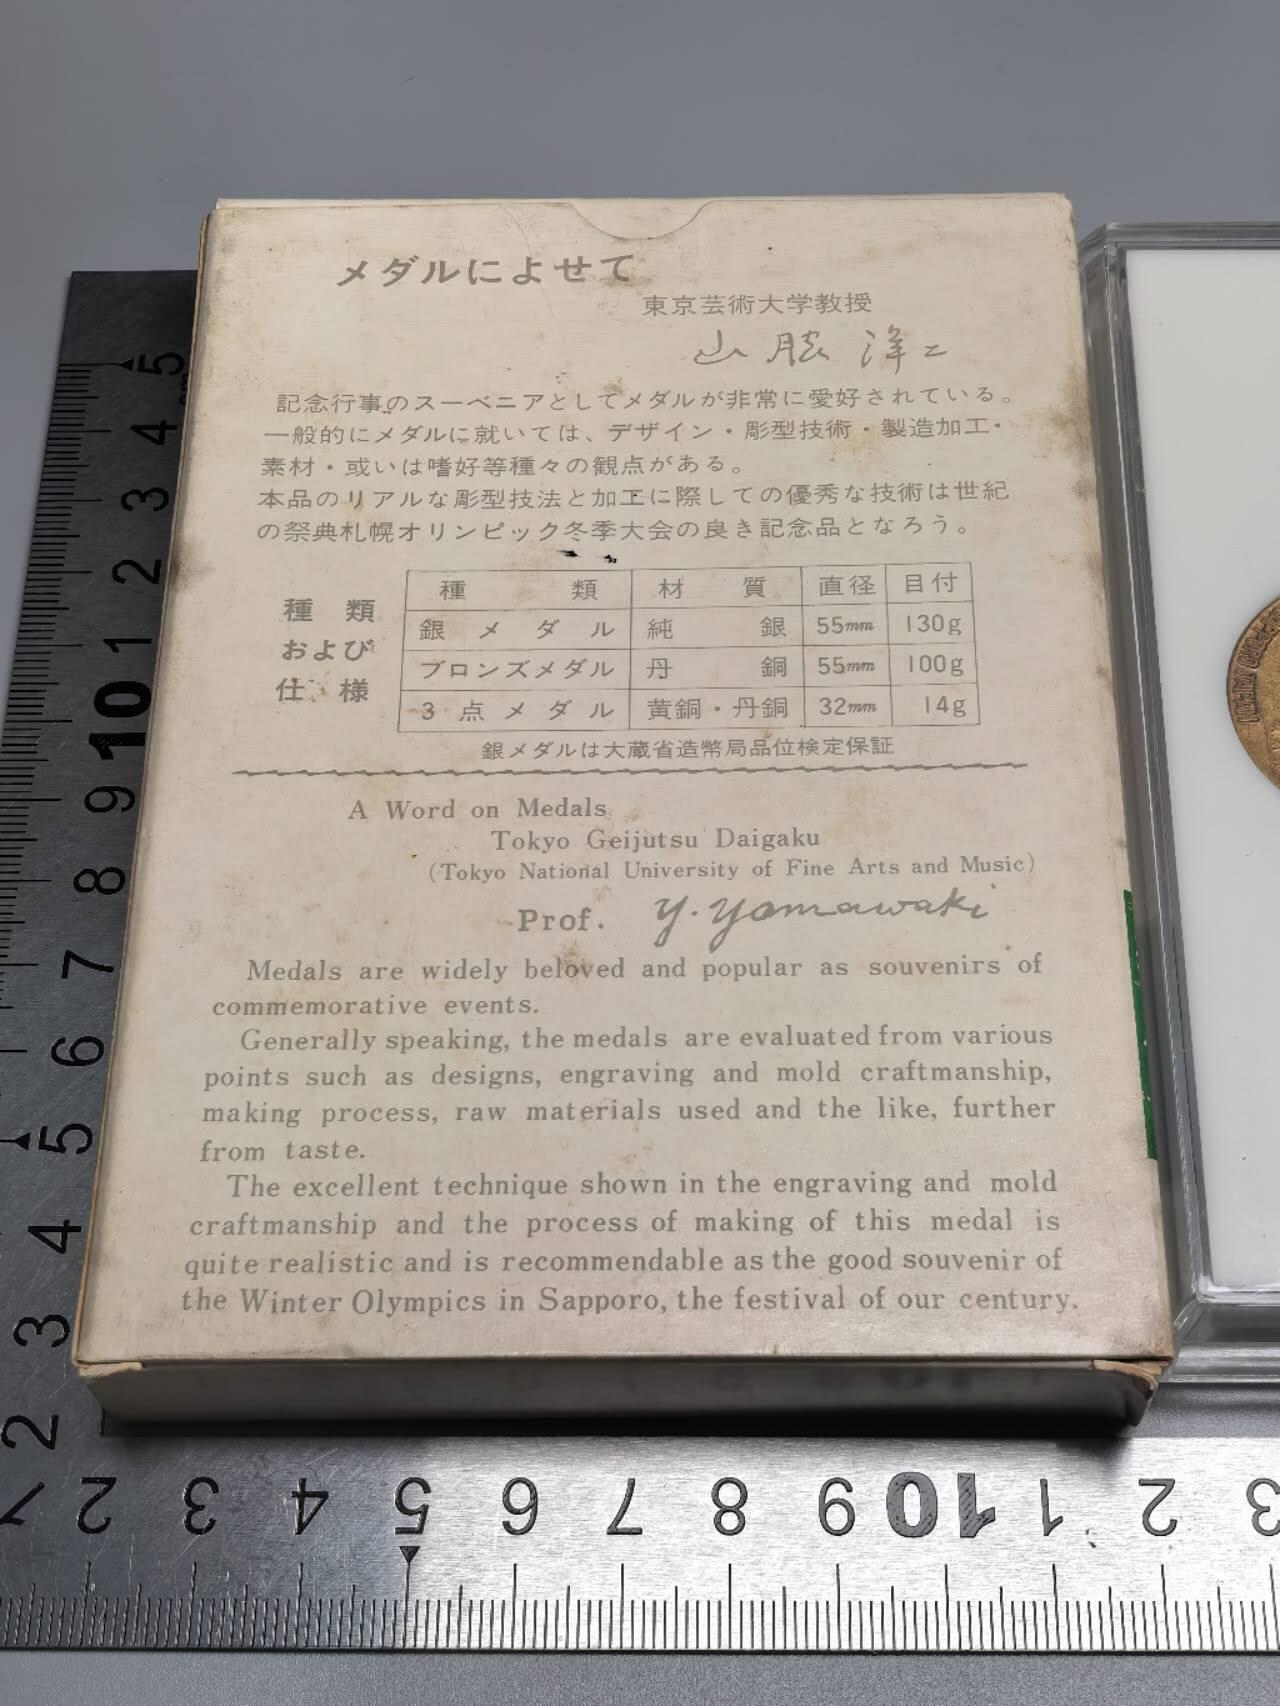 メダルによせて
東京芸術大学教授
山脇洋二
記念行事のスーベニアとしてメダルが非常に愛好されている。
一般的にメダルに就いては、デザイン・彫型技術・製造加工・
素材・或いは嗜好等種々の観点がある。
本品のリアルな彫型技法と加工に際しての優秀な技術は世紀
の祭典札幌オリンピック冬季大会の良き記念品となろう。
種類
および
仕様
種類 材質 直径 目付
銀メダル 純銀 55mm 130g
ブロンズメダル 丹銅 55mm 100g
3点メダル 黄銅・丹銅 32mm 14g
銀メダルは大蔵省造幣局品位検定保証
A Word on Medals
Tokyo Geijutsu Daigaku
(Tokyo National University of Fine Arts and Music)
Prof. Y. Yamawaki
Medals are widely beloved and popular as souvenirs of
commemorative events.
Generally speaking, the medals are evaluated from various
points such as designs, engraving and mold craftmanship,
making process, raw materials used and the like, further
from taste.
The excellent technique shown in the engraving and mold
craftmanship and the process of making of this medal is
quite realistic and is recommendable as the good souvenir of
the Winter Olympics in Sapporo, the festival of our century.
5
4
3
2
1
10
9
8
7
6
5
4
3
2
1 2 3 4 5 6 7 8 9 10 1 2 3